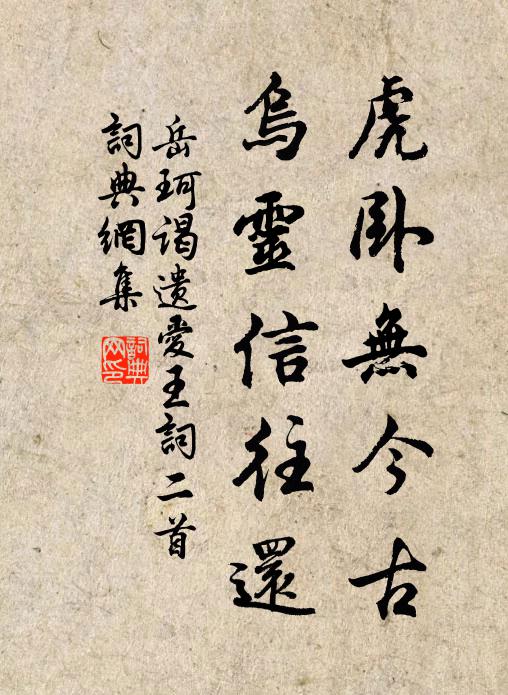 虎臥無今古
烏靈信往還
岳珂謁遺愛王詞二首
詞典網集
詞典网印